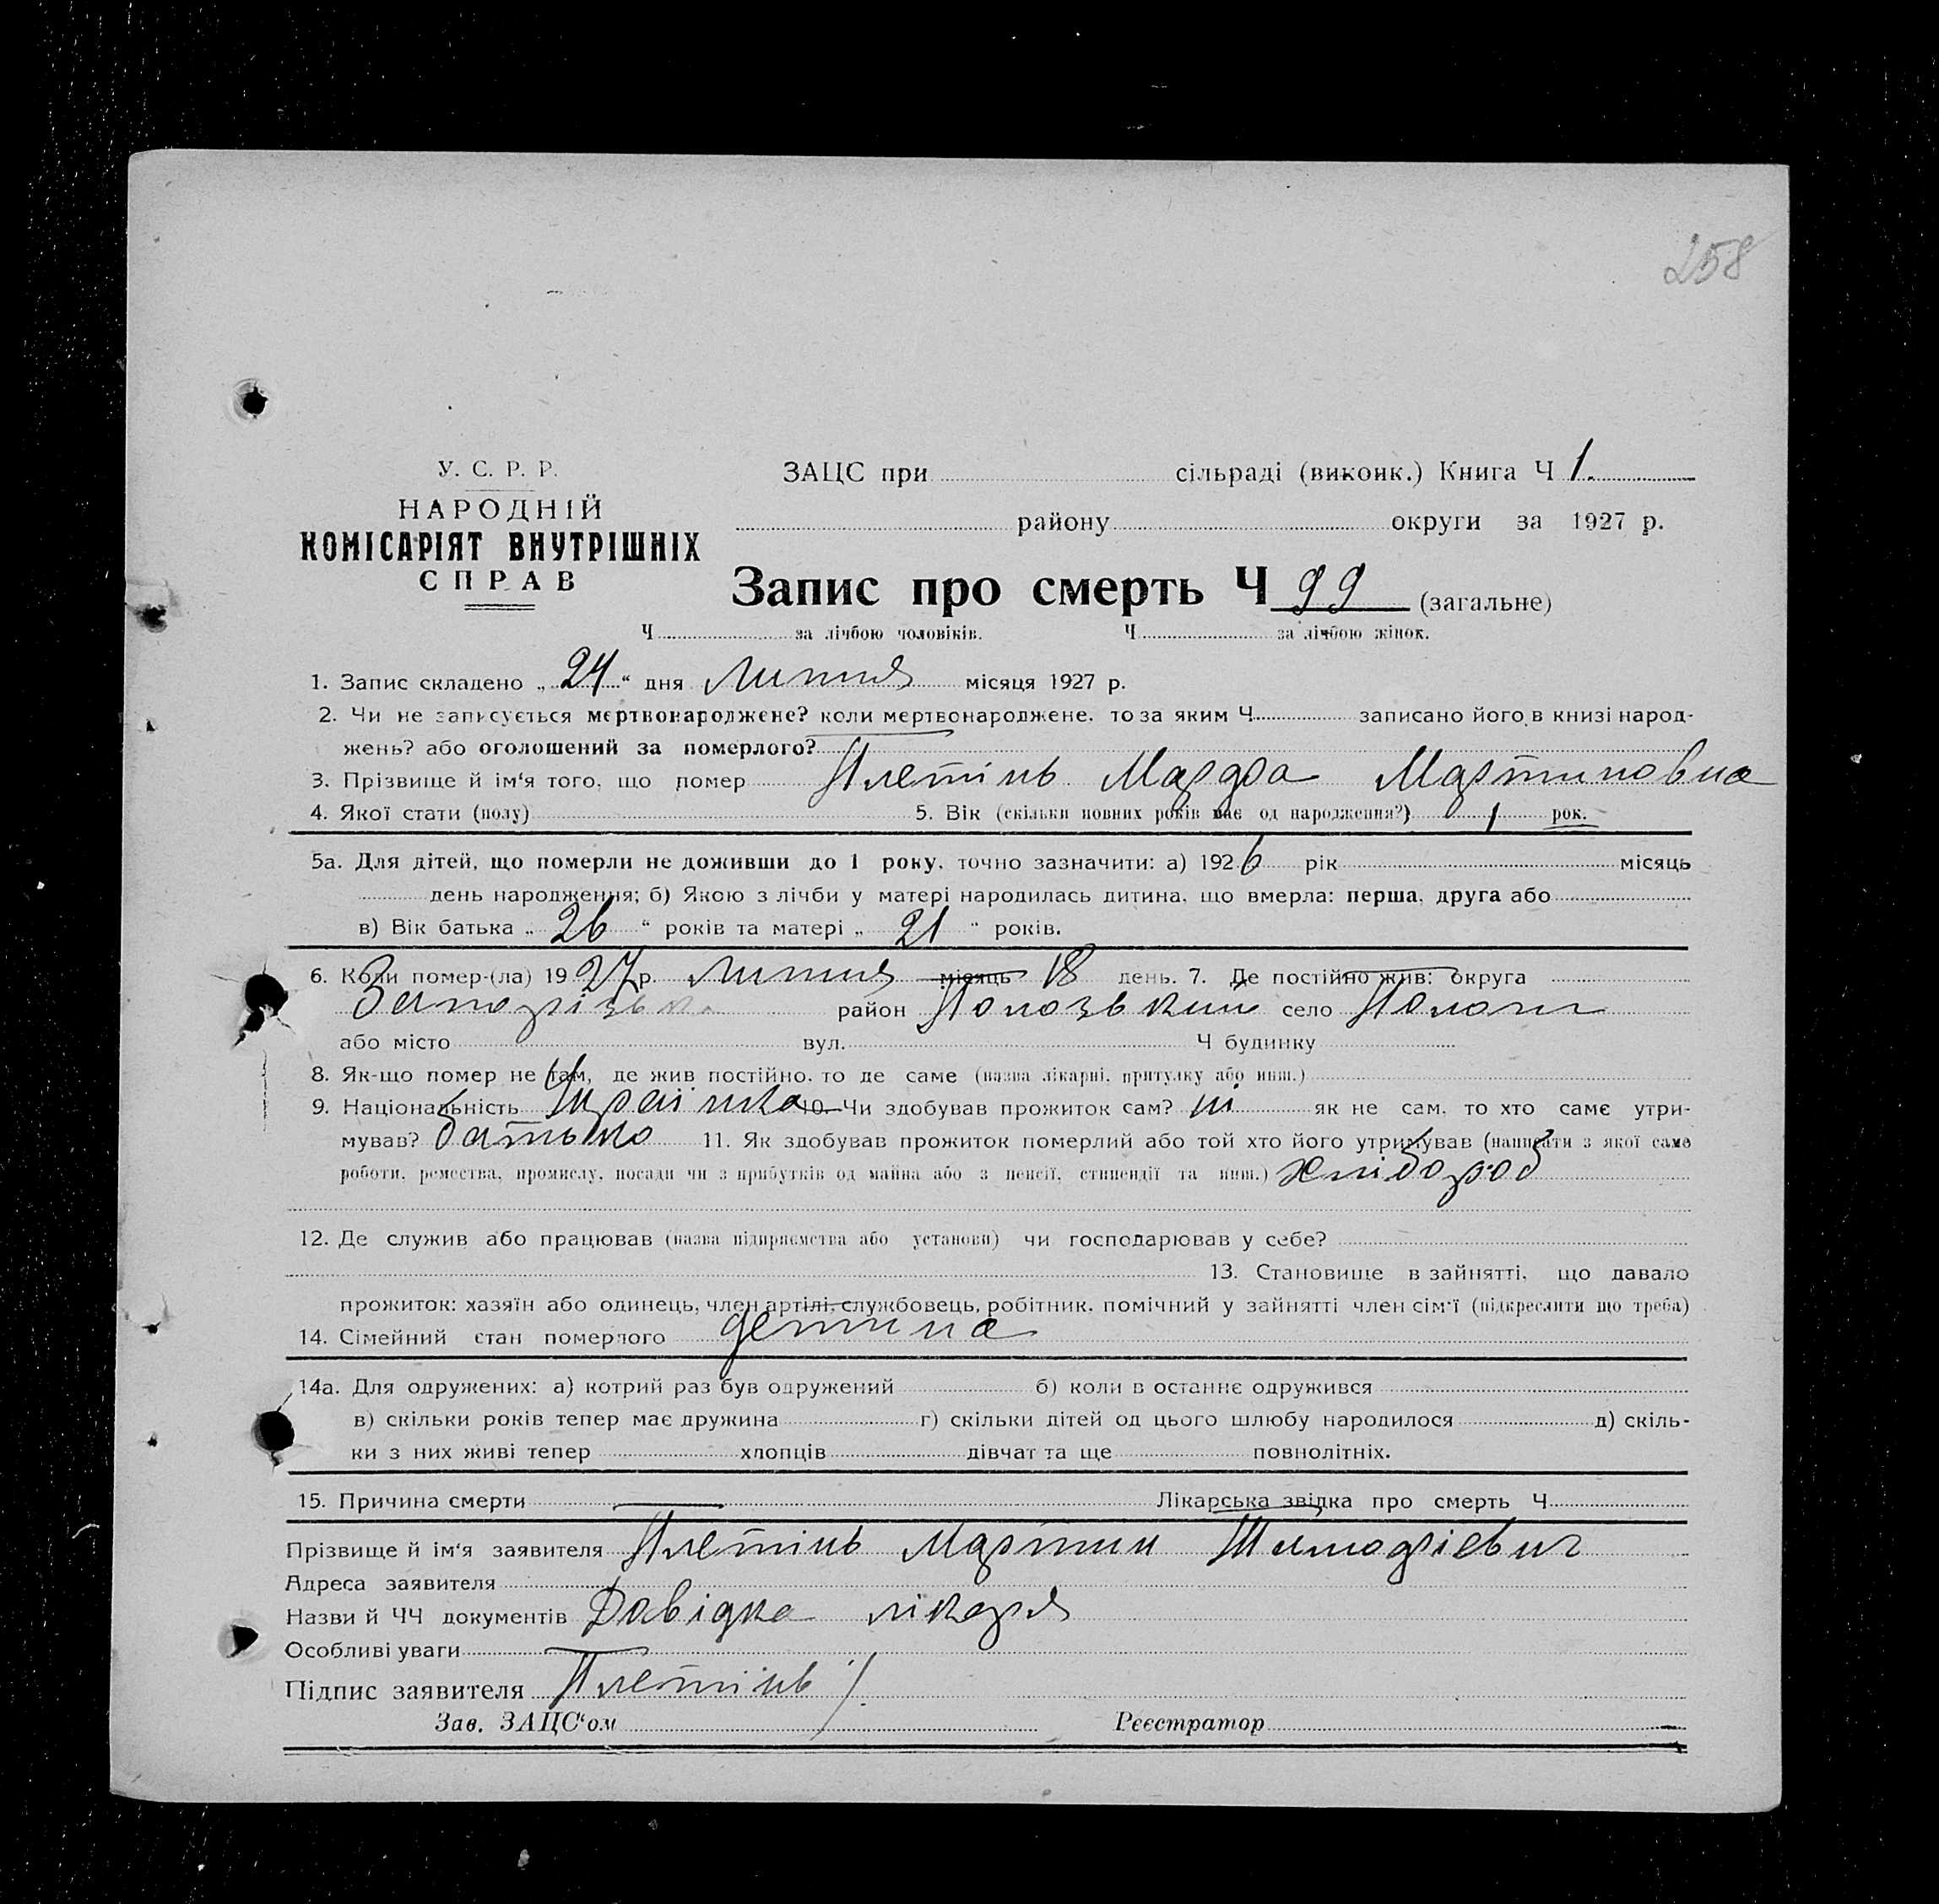 258
У. С. Р. Р.
НАРОДНІЙ
КОМІСАРІЯТ ВНУТРІШНІХ
СПРАВ
ЗАЦС при сільраді (виконк.) Книга Ч 1.
району округи за 1927 р.
Запис про смерть Ч 99 (загальне)
Ч за лічбою чоловіків. Ч за лічбою жінок.
1. Запис складено „24“ дня Липня місяця 1927 р.
2. Чи не записується мертвонароджене? коли мертвонароджене, то за яким Ч записано його в книзі народ-
жень? або оголошений за померлого?
3. Прізвище й ім‘я того, що помер Плетінь Мартиновна
4. Якої стати (полу) 5. Вік (скільки повних років має од народження?) 1 рок.
5а. Для дітей, що померли не доживши до 1 року, точно зазначити: а) 1926 рік місяць
день народження; б) Якою з лічби у матері народилась дитина, що вмерла: перша, друга або
в) Вік батька „26“ років та матері „21“ років.
6. Коли помер-(ла) 1927 р. Липня місяць 18 день. 7. Де постійно жив: округа
Запорізька район Пологський село Пологи
або місто вул. Ч будинку
8. Як-що помер не там, де жив постійно, то де саме (назва лікарні, притулку або инш.)
9. Національність Українка 10. Чи здобував прожиток сам? ні як не сам, то хто саме утри-
мував? батько 11. Як здобував прожиток померлий або той хто його утримував (написати з якої саме
роботи, ремества, промислу, посади чи з прибутків од майна або з пенсії, стипендії та инш.) хлібороб
12. Де служив або працював (назва підприємства або установи) чи господарював у себе?
13. Становище в зайнятті, що давало
прожиток: хазяїн або одинець, член артілі, службовець, робітник, помічний у зайнятті член сім‘ї (підкреслити що треба)
14. Сімейний стан померлого детина
14а. Для одружених: а) котрий раз був одружений б) коли в останнє одружився
в) скільки років тепер має дружина г) скільки дітей од цього шлюбу народилося д) скіль-
ки з них живі тепер хлопців дівчат та ще повнолітніх.
15. Причина смерти Лікарська звідка про смерть Ч
Прізвище й ім‘я заявителя Плетінь Мартин
Адреса заявителя
Назви й ЧЧ документів Довідка лікаря
Особливі уваги
Підпис заявителя Плетінь
Зав. ЗАЦС‘ом Реєстратор